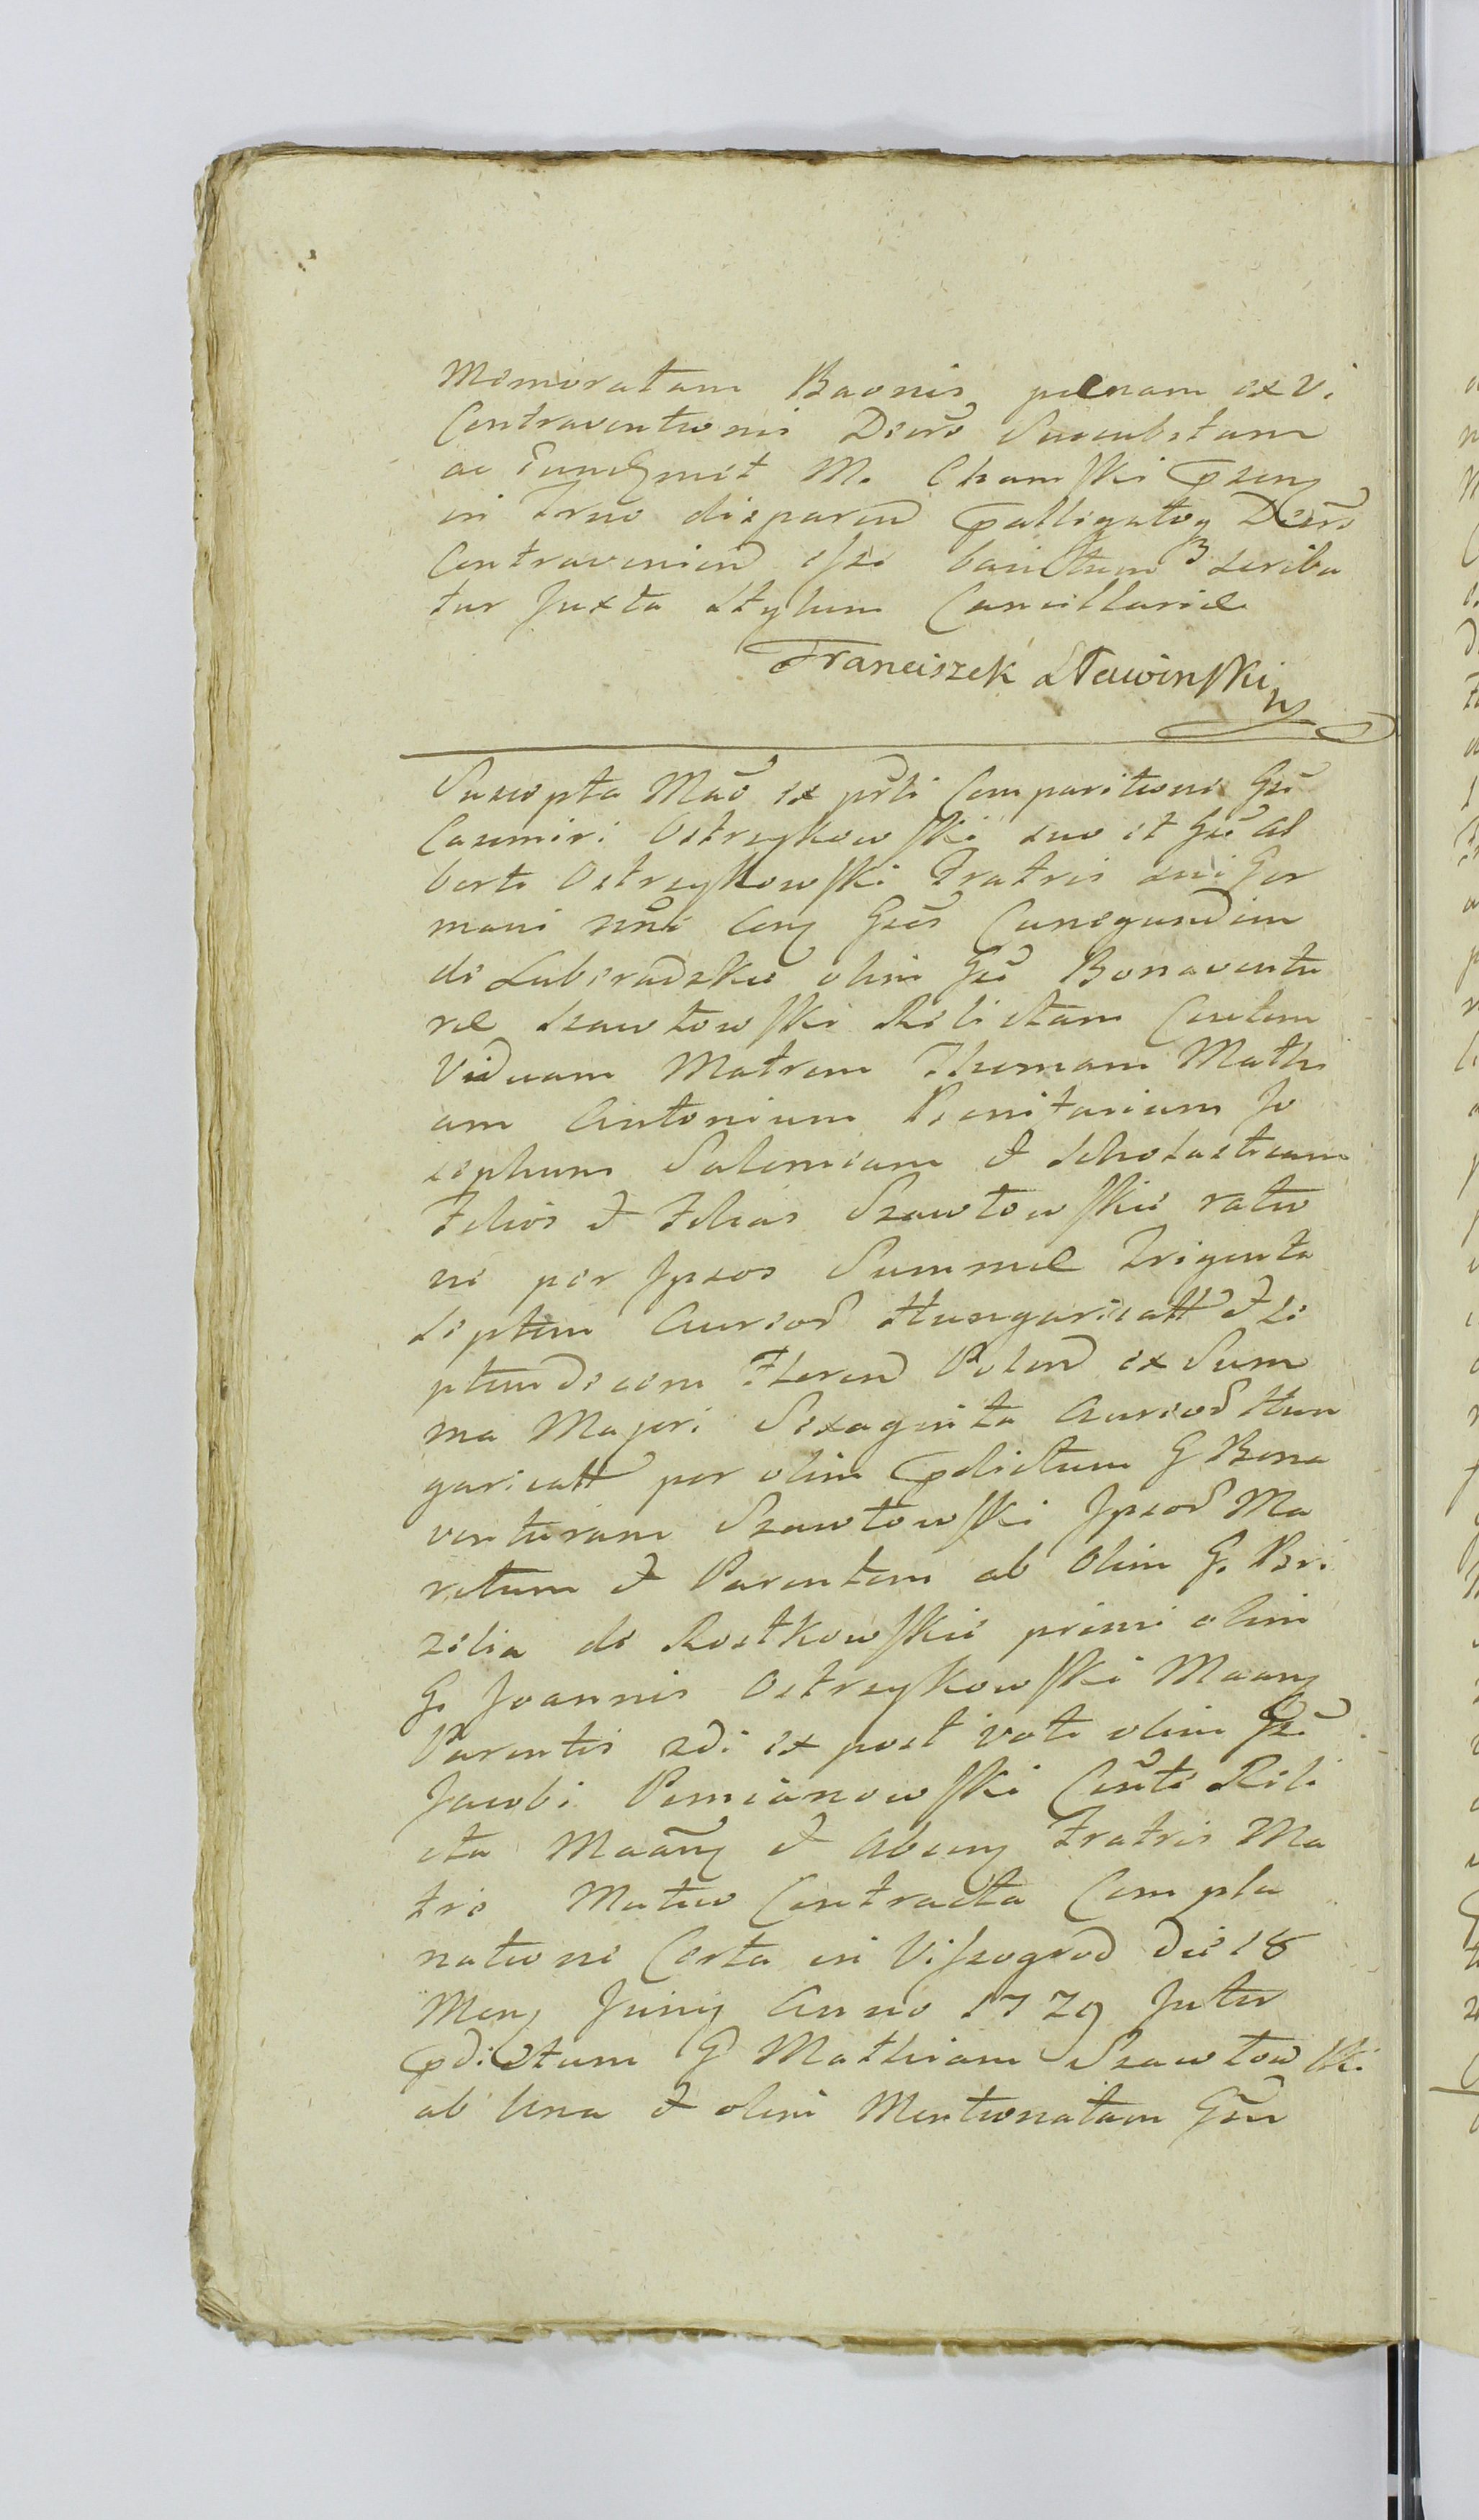 Memoratam Baonis pœnam ex Vi
Contraventionis Decro Succubitam
ac eund̃ met M. Chamski
in Trno disparen̄ palligatoq Decro
Contravenien̄ esse banitum scriba
tur Juxta Stylum Cancellariæ
Franciszek Sławinski
Suscepta Mão ex prti Comparitione Gsi
Casimiri Ostrzykowski suo et Gsi Al
berti Ostrzykowski Fratris sui Ger
mani nñi Conq Gsos Cunegundim
de Luberadzkie olim Gsi Bonaventu
ræ Szawłowski Relictam Cautem
Viduam Matrem Thomam Mathi
am Antonium Bonifacium Jo
sephum Salomeam & Scholasticam
Filios & Filias Szawłowskie ratio
ne per Ipsos Summæ Triginta
Septem Aureor Hungaricatt & Se
ptemdecem Floren Polon ex Sum
ma Majori Sexaginta Aureor Hun
garicatt per olim pdictum G Bona
venturam Szawłowski Ipsor Ma
ritum & Parentem ab olim G. Bri
zilia de Rostkowskie primi olim
G. Joannis Ostrzykowski Maanq
Parentis 2di ex post voti olim Gsi
Jacobi Pomianowski Cnte Reli
cta Maanq & abinq Fratris Ma
tre Mutuo Contracta Compla
natione Certa in Viszogrod Die 18
Mens Junij Anno 1729 Inter
pdictum G Mathiam Szawłowski
ab una & olim Mentionatam Gsm